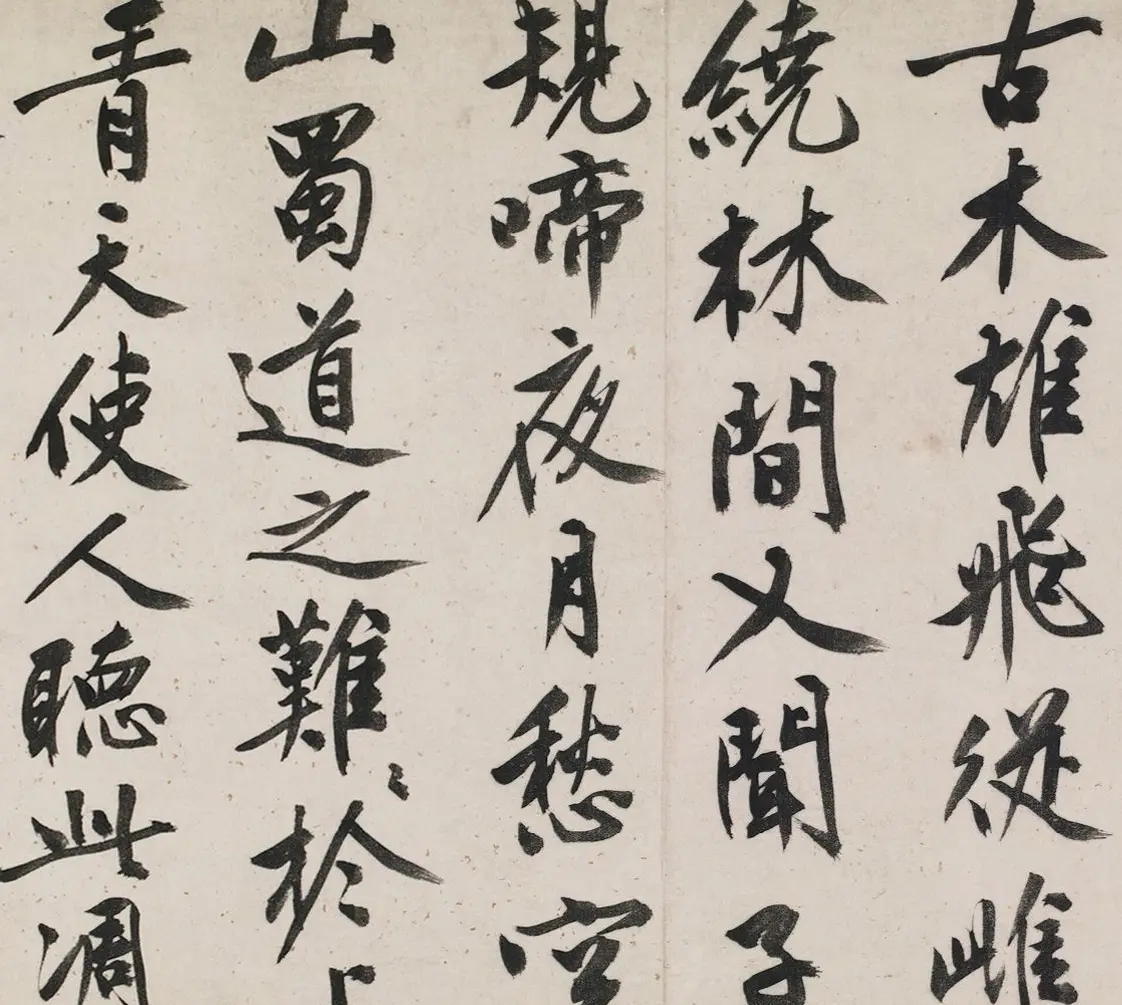 古木雄飛從雌
繞林間又聞子
規啼夜月愁空
山蜀道之難〻於上
青天使人聽此凋